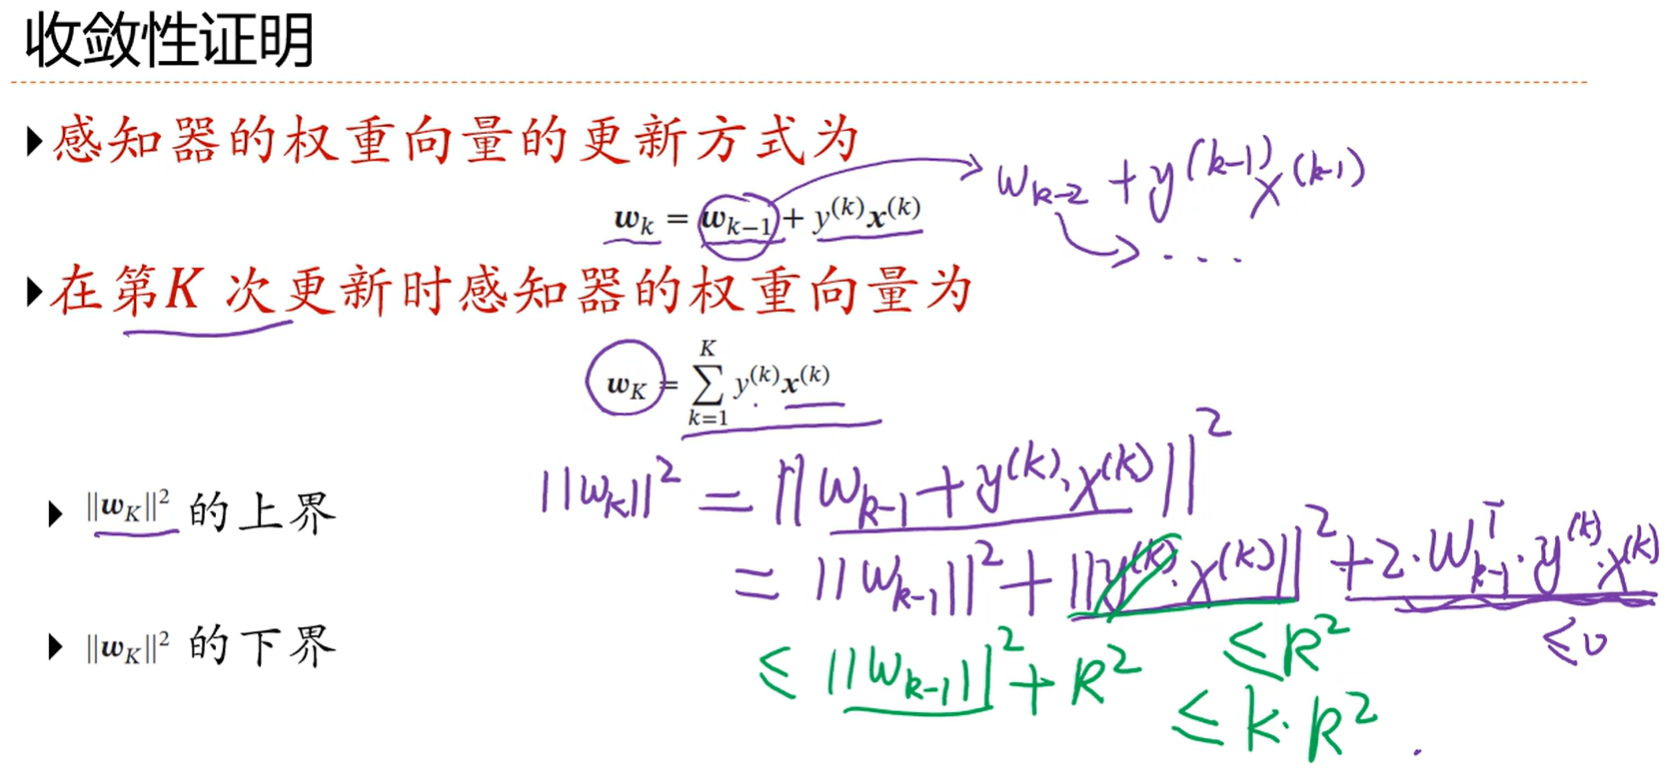 收敛性证明
感知器的权重向量的更新方式为
w_k = w_{k-1} + y^{(k)}x^{(k)}
w_{k-2} + y^{(k-1)}x^{(k-1)}
...
在第K 次更新时感知器的权重向量为
w_K = \sum_{k=1}^{K} y^{(k)}x^{(k)}
||w_K||^2 的上界
||w_k||^2 = ||w_{k-1} + y^{(k)}·x^{(k)}||^2
= ||w_{k-1}||^2 + ||y^{(k)}·x^{(k)}||^2 + 2·w_{k-1}^T·y^{(k)}·x^{(k)}
≤R^2
≤0
||w_K||^2 的下界
≤ ||w_{k-1}||^2 + R^2
≤ k·R^2